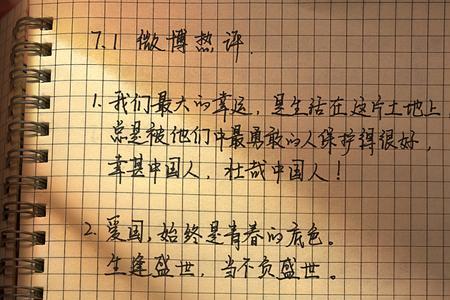 7.1 微博热评.
1. 我们最大的幸运，是生活在这片土地上
总是被他们中最勇敢的人保护得很好，
幸甚中国人，壮哉中国人！
2. 爱国，始终是青春的底色。
生逢盛世，当不负盛世。